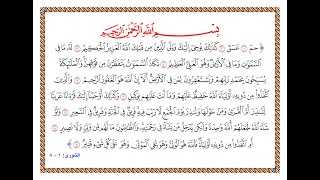 بِسْمِ اللَّهِ الرَّحْمَٰنِ الرَّحِيمِ
﴿ حمٓ ۝١ عٓسٓقٓ ۝٢ كَذَٰلِكَ يُوحِىٓ إِلَيْكَ وَإِلَى ٱلَّذِينَ مِن قَبْلِكَ ٱللَّهُ ٱلْعَزِيزُ ٱلْحَكِيمُ ۝٣ لَهُۥ مَا فِى
ٱلسَّمَٰوَٰتِ وَمَا فِى ٱلْأَرْضِ وَهُوَ ٱلْعَلِىُّ ٱلْعَظِيمُ ۝٤ تَكَادُ ٱلسَّمَٰوَٰتُ يَتَفَطَّرْنَ مِن فَوْقِهِنَّ وَٱلْمَلَٰٓئِكَةُ
يُسَبِّحُونَ بِحَمْدِ رَبِّهِمْ وَيَسْتَغْفِرُونَ لِمَن فِى ٱلْأَرْضِ أَلَآ إِنَّ ٱللَّهَ هُوَ ٱلْغَفُورُ ٱلرَّحِيمُ ۝٥ وَٱلَّذِينَ
ٱتَّخَذُوا۟ مِن دُونِهِۦٓ أَوْلِيَآءَ ٱللَّهُ حَفِيظٌ عَلَيْهِمْ وَمَآ أَنتَ عَلَيْهِم بِوَكِيلٍ ۝٦ وَكَذَٰلِكَ أَوْحَيْنَآ إِلَيْكَ قُرْءَانًا عَرَبِيًّا
لِّتُنذِرَ أُمَّ ٱلْقُرَىٰ وَمَنْ حَوْلَهَا وَتُنذِرَ يَوْمَ ٱلْجَمْعِ لَا رَيْبَ فِيهِ فَرِيقٌ فِى ٱلْجَنَّةِ وَفَرِيقٌ فِى ٱلسَّعِيرِ ۝٧ وَلَوْ
شَآءَ ٱللَّهُ لَجَعَلَهُمْ أُمَّةً وَٰحِدَةً وَلَٰكِن يُدْخِلُ مَن يَشَآءُ فِى رَحْمَتِهِۦ وَٱلظَّٰلِمُونَ مَا لَهُم مِّن وَلِىٍّ وَلَا نَصِيرٍ ۝٨
أَمِ ٱتَّخَذُوا۟ مِن دُونِهِۦٓ أَوْلِيَآءَ فَٱللَّهُ هُوَ ٱلْوَلِىُّ وَهُوَ يُحْىِ ٱلْمَوْتَىٰ وَهُوَ عَلَىٰ كُلِّ شَىْءٍ قَدِيرٌ ۝٩ ﴾
الشورى: ١ - ٨